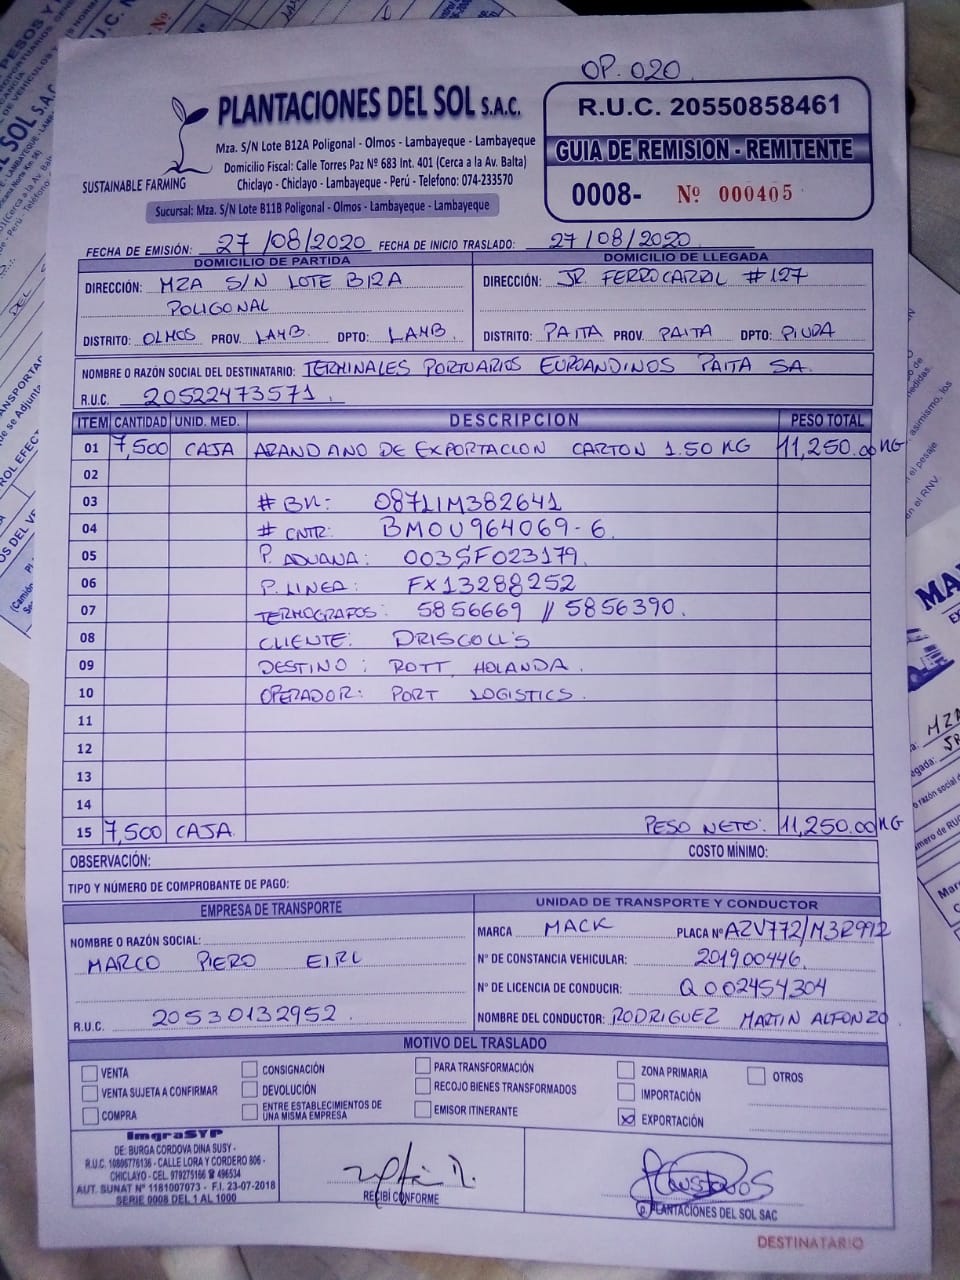 OP. 020
PLANTACIONES DEL SOL S.A.C.
Mza. S/N Lote B12A Poligonal - Olmos - Lambayeque - Lambayeque
Domicilio Fiscal: Calle Torres Paz Nº 683 Int. 401 (Cerca a la Av. Balta)
Chiclayo - Chiclayo - Lambayeque - Perú - Telefono: 074-233570
SUSTAINABLE FARMING
Sucursal: Mza. S/N Lote B11B Poligonal - Olmos - Lambayeque - Lambayeque
R.U.C. 20550858461
GUIA DE REMISION - REMITENTE
0008- Nº 000405
FECHA DE EMISIÓN: 27/08/2020 FECHA DE INICIO TRASLADO: 27/08/2020
DOMICILIO DE PARTIDA
DIRECCIÓN: MZA S/N LOTE B12A
POLIGONAL
DISTRITO: OLMOS PROV. LAMB. DPTO: LAMB.
DOMICILIO DE LLEGADA
DIRECCIÓN: JR. FERROCARRIL #127
DISTRITO: PAITA PROV. PAITA DPTO: PIURA
NOMBRE O RAZÓN SOCIAL DEL DESTINATARIO: TERMINALES PORTUARIOS EUROANDINOS PAITA SA.
R.U.C. 20522473571.
ITEM CANTIDAD UNID. MED. DESCRIPCION PESO TOTAL
01 7,500 CAJA ARANDANO DE EXPORTACION CARTON 1.50 KG 11,250.00 KG
02
03 # BK: 087LIM382641
04 # CNTR: BMOU964069-6.
05 P. ADUANA: 003SF023179.
06 P. LINEA: FX13288252
07 TERMOGRAFOS: 5856669 // 5856390.
08 CLIENTE: DRISCOLL'S
09 DESTINO: ROTT, HOLANDA.
10 OPERADOR: PORT LOGISTICS.
11
12
13
14
15 7,500 CAJA. PESO NETO: 11,250.00 KG
OBSERVACIÓN: COSTO MÍNIMO:
TIPO Y NÚMERO DE COMPROBANTE DE PAGO:
EMPRESA DE TRANSPORTE
NOMBRE O RAZÓN SOCIAL:
MARCO PIERO EIRL
R.U.C. 20530132952.
UNIDAD DE TRANSPORTE Y CONDUCTOR
MARCA MACK PLACA Nº AZV772/M3R992
Nº DE CONSTANCIA VEHICULAR: 201900446.
Nº DE LICENCIA DE CONDUCIR: Q002454304
NOMBRE DEL CONDUCTOR: RODRIGUEZ MARTIN ALFONZO.
MOTIVO DEL TRASLADO
VENTA CONSIGNACIÓN PARA TRANSFORMACIÓN ZONA PRIMARIA OTROS
VENTA SUJETA A CONFIRMAR DEVOLUCIÓN RECOJO BIENES TRANSFORMADOS IMPORTACIÓN
COMPRA ENTRE ESTABLECIMIENTOS DE
UNA MISMA EMPRESA EMISOR ITINERANTE X EXPORTACIÓN
ImgraSYP
DE: BURGA CORDOVA DINA SUSY -
R.U.C. 10806776136 - CALLE LORA Y CORDERO 806 -
CHICLAYO - CEL. 979275166 ☎ 496534
AUT. SUNAT Nº 1181007073 - F.I. 23-07-2018
SERIE 0008 DEL 1 AL 1000
RECIBÍ CONFORME
p. PLANTACIONES DEL SOL SAC
DESTINATARIO